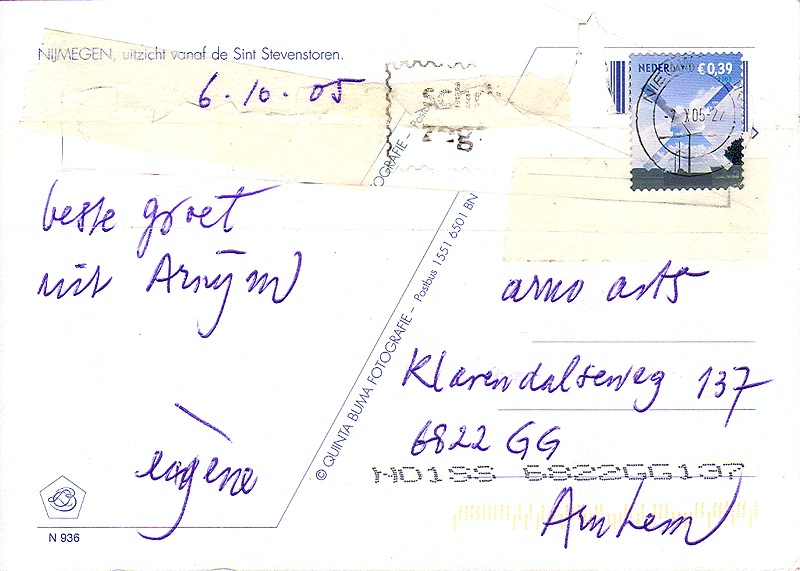 NIJMEGEN, uitzicht vanaf de Sint Stevenstoren.
6.10.05
NEDERLAND €0,39
beste groet
uit Arnym
eugène
© QUINTA BUMA FOTOGRAFIE – Postbus 1551 6501 BN
OGRAFIE –
arno arts
Klarendalseweg 137
6822 GG
ND1SS 6822GG137
Arnhem
N 936